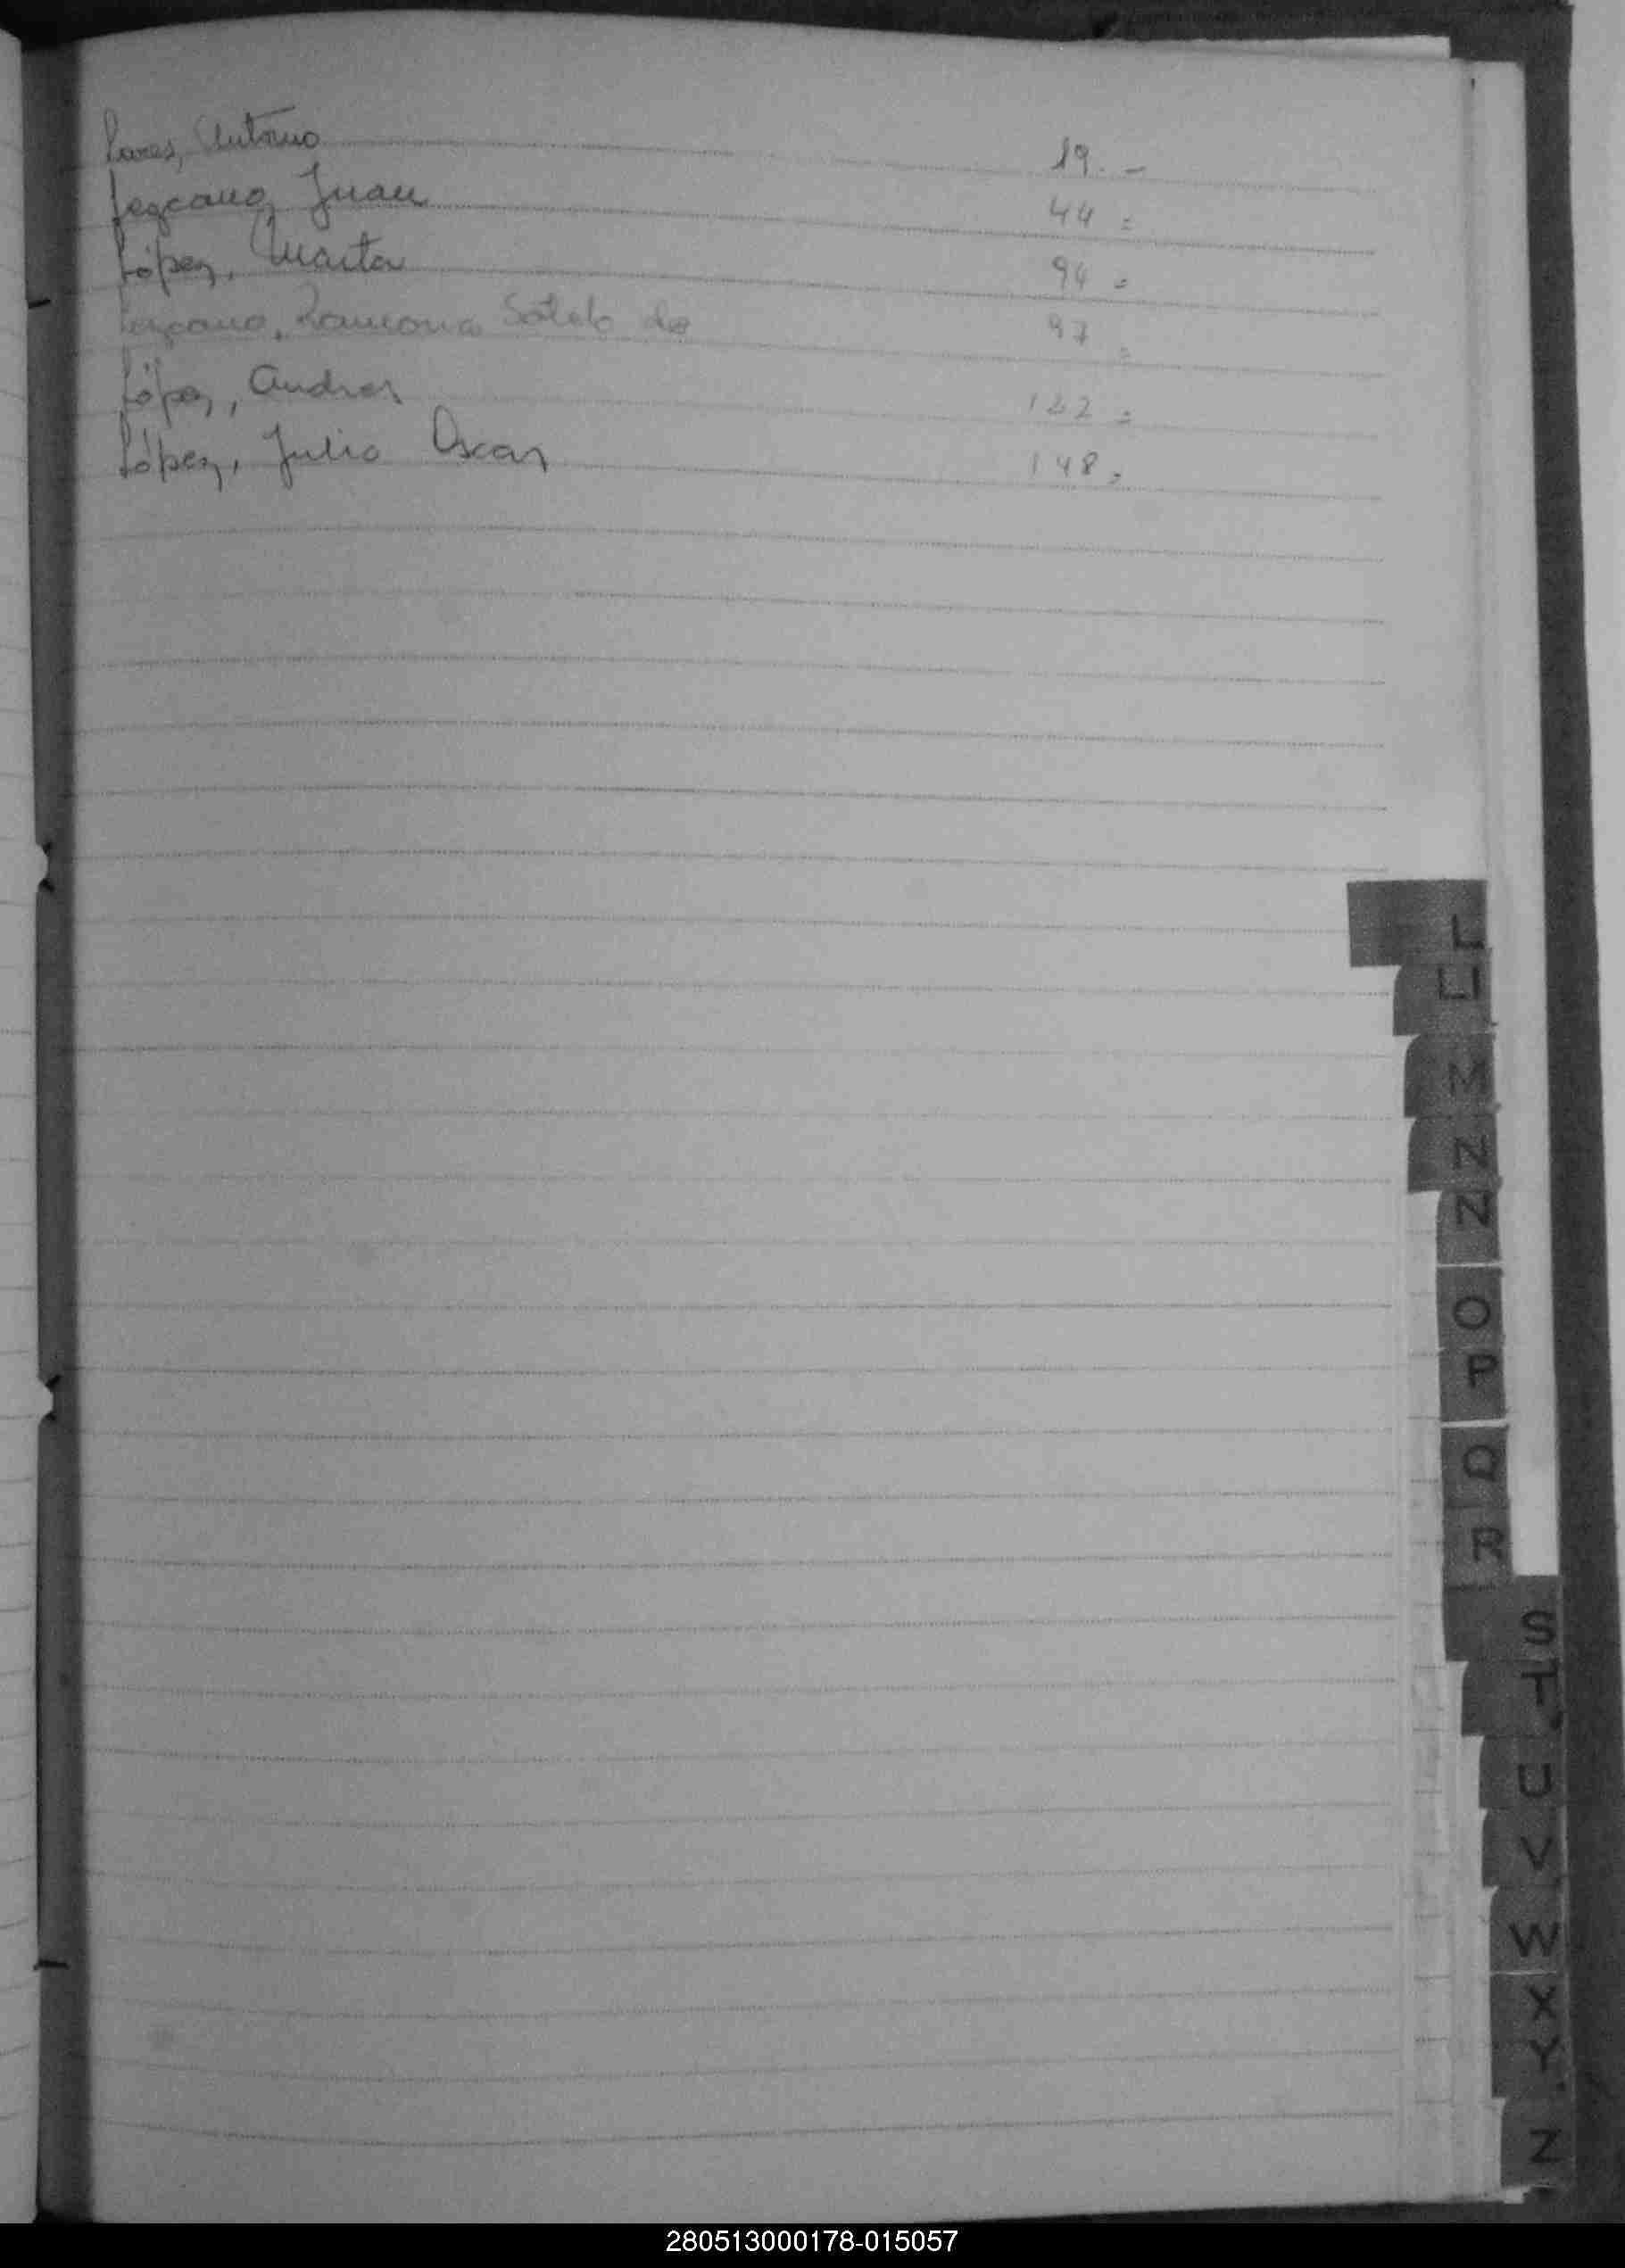 Lares, Antonio 19.-
Lezcano, Juan 44 =
López, Marta 94 =
Lezcano, Ramona Sotelo de 97 =
López, Andres 142 =
López, Julio Oscar 148 =
L
Ll
M
N
Ñ
O
P
Q
R
S
T
U
V
W
X
Y
Z
280513000178-015057